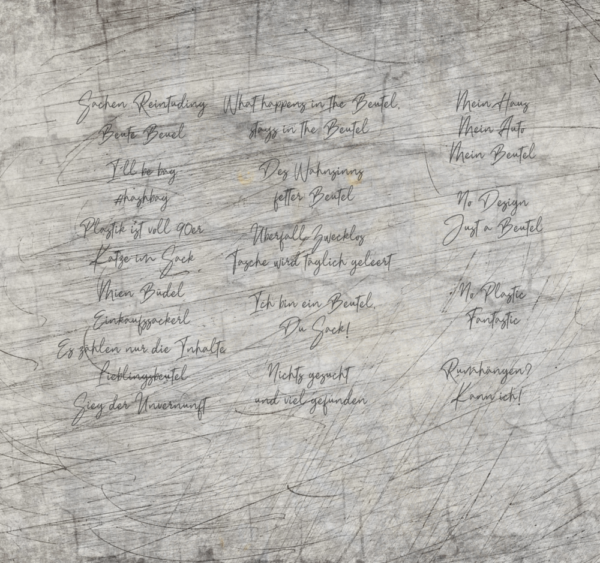 Sachen Reintuding
Beute Beuel
I'll be bag
#hashbag
Plastik ist voll 90er
Katze im Sack
Mien Büdel
Einkaufssackerl
Es zählen nur die Inhalte
Lieblingsbeutel
Sieg der Unvernunft
What happens in the Beutel,
stays in the Beutel
Des Wahnsinns
fetter Beutel
Überfall Zwecklos
Tasche wird täglich geleert
Ich bin ein Beutel,
Du Sack!
Nichts gesucht
und viel gefunden
Mein Haus
Mein Auto
Mein Beutel
No Design
Just a Beutel
No Plastic
Fantastic
Rumhängen?
Kann ich!